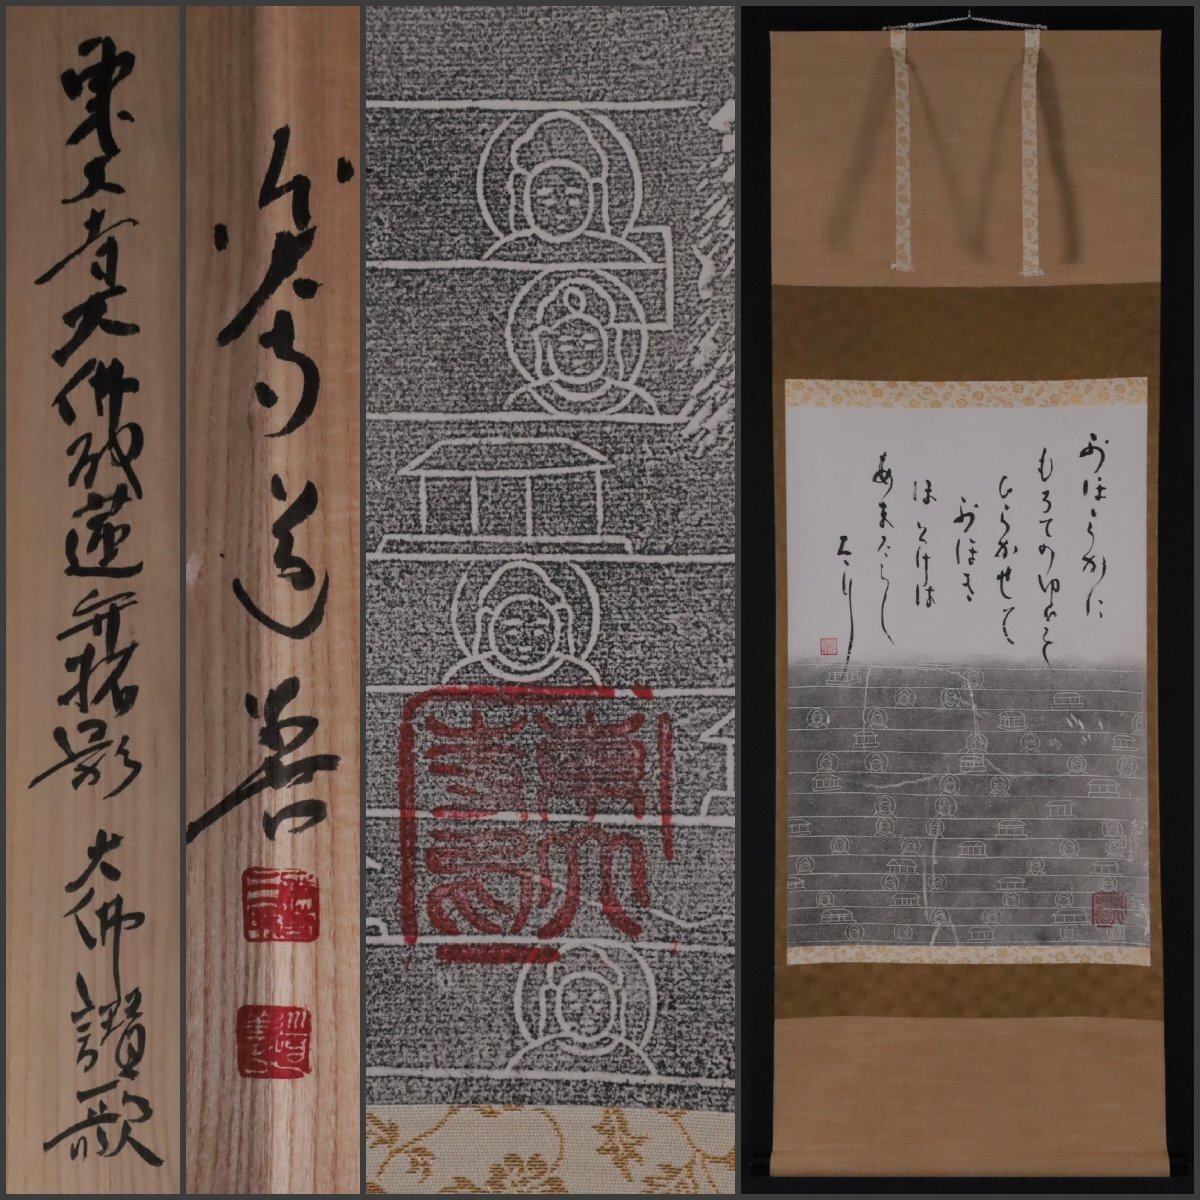 東大寺大佛殿蓮弁拓影 大佛讃歌
道善
おほらかに
もろてのゆびを
ひらかせて
おほき
ほとけは
あまたらし
たり